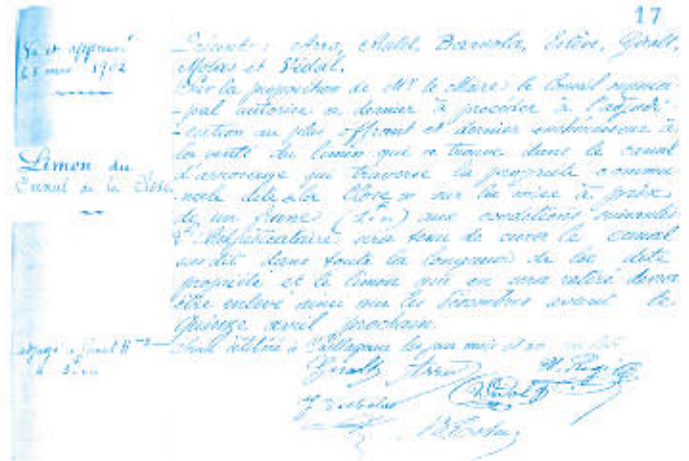 17
Vu et approuvé
28 mars 1902
Limon du
Canal de la Close
Présents : Arro, Batlle, Estève, Giralt,
et Vidal.
Sur la proposition de Mr le Maire, le Conseil munici
-pal autorise ce dernier à procéder à l'adjudi
-cation au plus offrant et dernier enchérisseur à
la vente du limon qui se trouve dans le canal
d'arrosage qui traverse la propriété commu
-nale dite la Close sur la mise à prix
de un franc aux conditions suivantes
L'adjudicataire sera tenu de curer le canal
sus dit dans toute la longueur de la dite
propriété et le limon qui en sera retiré devra
être enlevé ainsi que les décombres avant le
quinze avril prochain.
Ainsi délibéré à les jour mois et an
Giralt Arro
Vidal